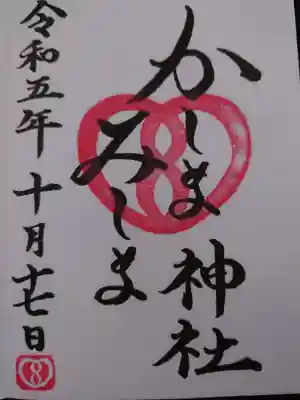 かしま神社
みしま
令和五年十月十七日
8
8